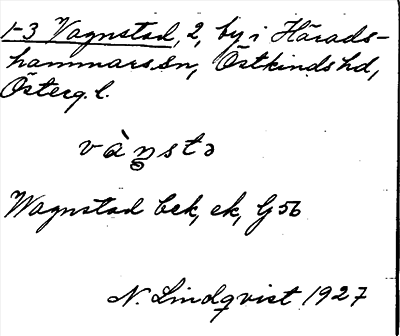 1-3 Vagnstad, 2, by i Härads-
hammars sn, Östkinds hd,
Österg. l.
Wagnstad bek, ek, G 56
N. Lindqvist 1927